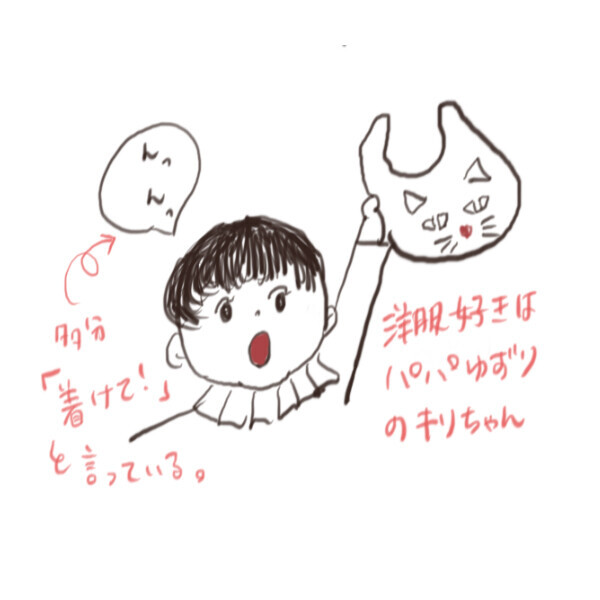 んっ
んっ
多分
「着けて!」
と言っている。
洋服好きは
パパゆずり
のキリちゃん